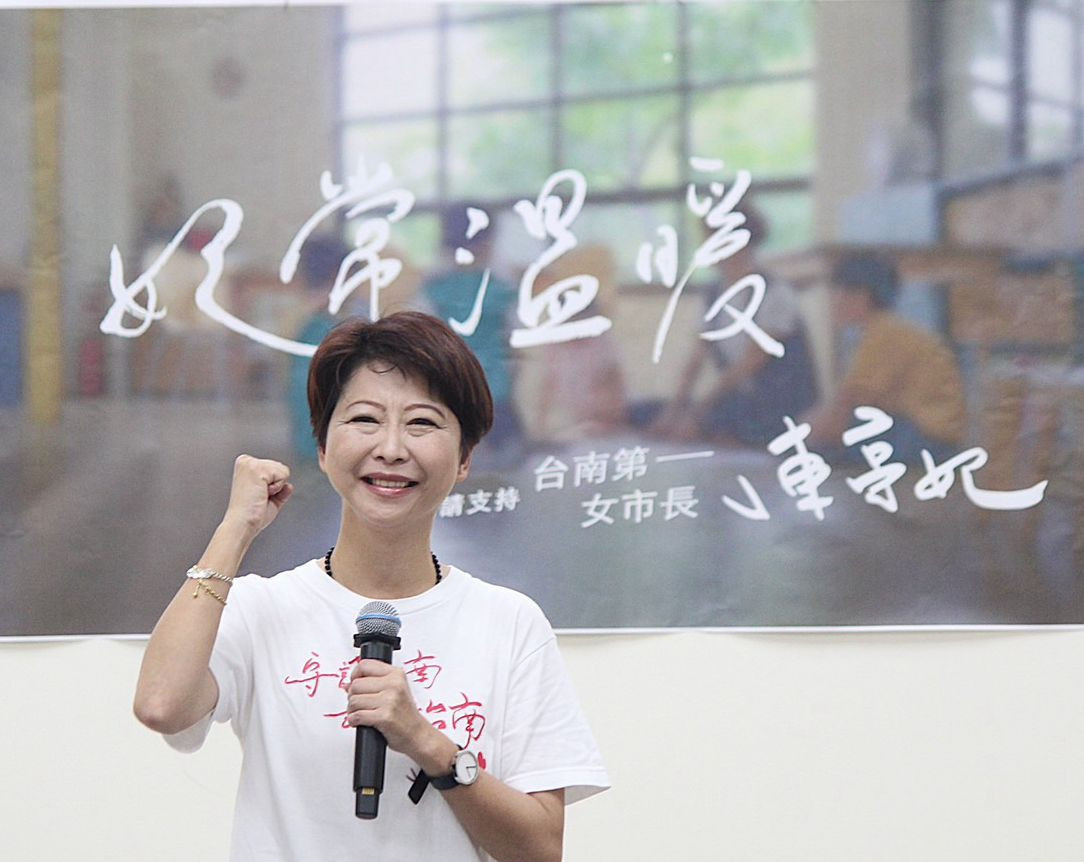 妃常溫暖
請支持
台南第一
女市長
陳亭妃
守 南
台南